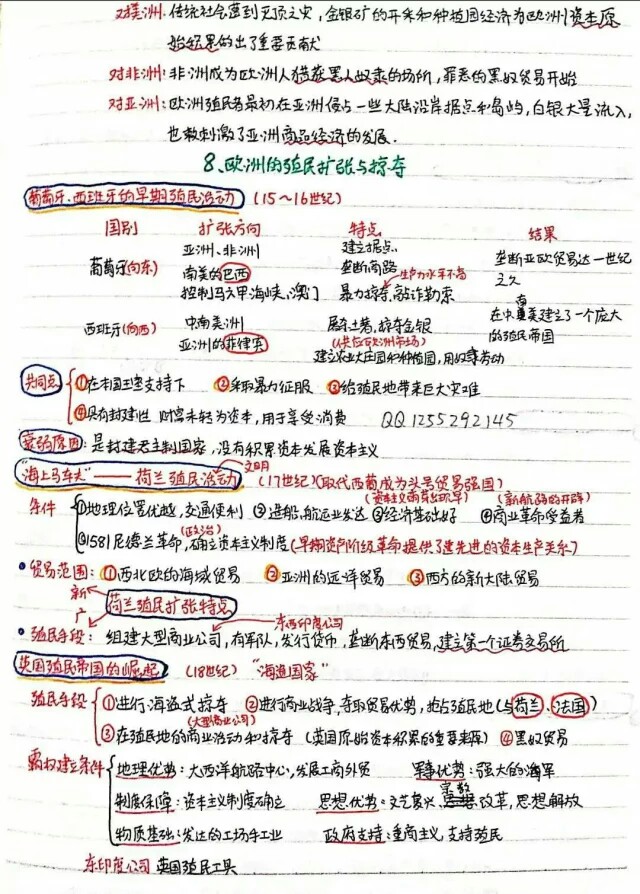 对美洲:传统社会遭到灭顶之灾,金银矿的开采和种植园经济为欧洲资本原
始积累的出了重要贡献
对非洲:非洲成为欧洲人猎获黑人奴隶的场所,罪恶的黑奴贸易开始
对亚洲:欧洲殖民者最初在亚洲侵占一些大陆沿岸据点和岛屿,白银大量流入,
也刺激了亚洲商品经济的发展.
8、欧洲的殖民扩张与掠夺
葡萄牙、西班牙的早期殖民活动 (15~16世纪)
国别 扩张方向 特点 结果
葡萄牙(向东) 亚洲、非洲 建立据点 垄断亚欧贸易达一世纪
南美的巴西 垄断商路 之久
生产力水平不高
控制马六甲海峡、澳门 暴力掠夺,敲诈勒索
西班牙(向西) 中南美洲 屠杀土著,掠夺金银 在中南美建立了一个庞大
亚洲的菲律宾 (供应欧洲市场) 的殖民帝国
建立农业大庄园和种植园,用奴隶劳动
共同点 ①在本国王室支持下 ②采取暴力征服 ③给殖民地带来巨大灾难
④具有封建性 财富未转为资本,用于享受消费 QQ1255292145
衰弱原因:是封建君主制国家,没有积累资本发展资本主义
"海上马车夫"——荷兰殖民活动 文明 (17世纪)(取代西葡成为头号贸易强国)
(资本主义萌芽出现早) (新航路的开辟)
条件 ①地理位置优越,交通便利 ②造船、航运业发达 ③经济基础好 ④商业革命受益者
(政治)
⑤1581尼德兰革命,确立资本主义制度(早期资产阶级革命提供了先进的资本生产关系)
贸易范围:①西北欧的海域贸易 ②亚洲的远洋贸易 ③西方的新大陆贸易
新
广 荷兰殖民扩张特点
东西印度公司
殖民手段:组建大型商业公司,有军队,发行货币,垄断东西贸易,建立第一个证券交易所
英国殖民帝国的崛起 (18世纪) "海盗国家"
殖民手段 ①进行海盗式掠夺 ②进行商业战争,夺取贸易优势,抢占殖民地(与荷兰、法国)
(大型商业公司)
③在殖民地的商业活动和掠夺 (英国原始资本积累的重要来源) ④黑奴贸易
霸权建立条件 地理优势:大西洋航路中心,发展工商外贸 军事优势:强大的海军
制度保障:资本主义制度确立 思想优势:文艺复兴、宗教改革,思想解放
物质基础:发达的工场手工业 政府支持:重商主义,支持殖民
东印度公司 英国殖民工具